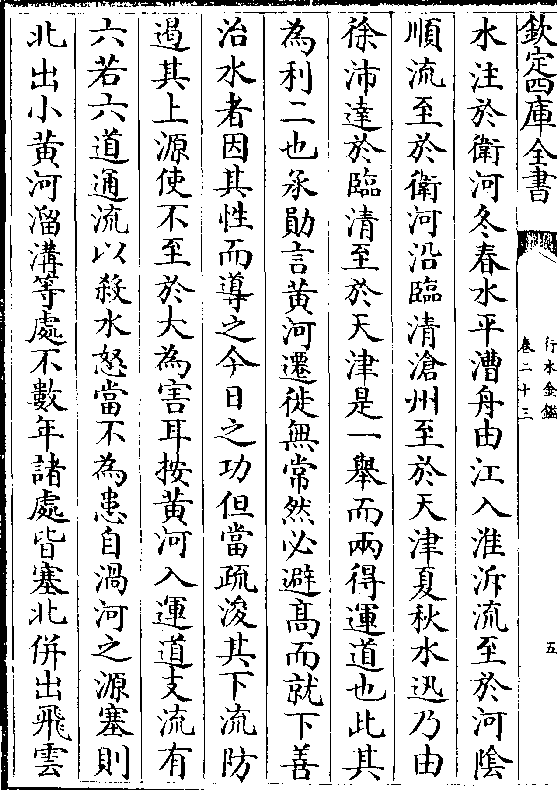 欽定四庫全書
行水金鑑
卷二十三
五
水注於衛河冬春水平漕舟由江入淮泝流至於河陰
順流至於衛河沿臨清滄州至於天津夏秋水迅乃由
徐沛達於臨清至於天津是一舉而兩得運道也此其
為利二也承勛言黃河遷徙無常然必避髙而就下善
治水者因其性而導之今日之功但當疏浚其下流防
過其上源使不至於大為害耳按黃河入運道支流有
六若六道通流以殺水怒當不為患自渦河之源塞則
北出小黃河溜溝等處不數年諸處皆塞北併出飛雲